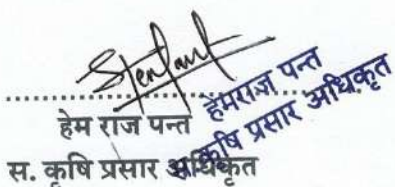 हेम राज पन्त
स. कृषि प्रसार अधिकृत
हेमराज पन्त
कृषि प्रसार अधिकृत